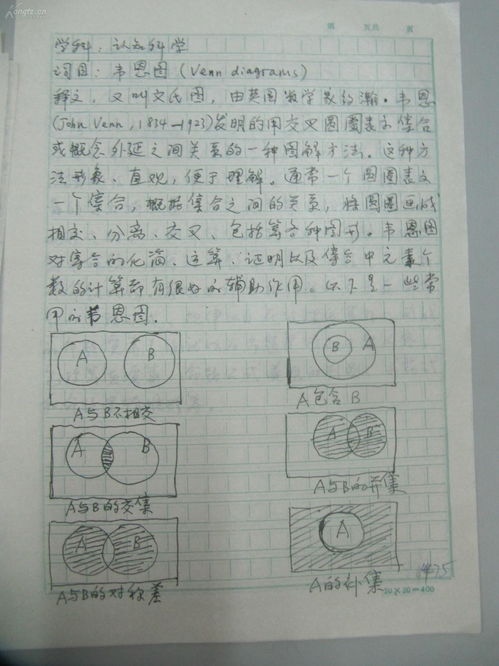 kongfz.cn
第 页
学科：认知科学
词目：韦恩图（Venn diagrams）
释义，又叫文氏图，由英国数学家约翰·韦恩
(John Venn，1834—1923)发明的用交叉圆圈表示集合
或概念外延之间关系的一种图解方法。这种方
法形象、直观，便于理解。通常一个圆圈表示
一个集合，概括集合之间的关系，将圆圈画成
相交、分离、交叉、包括等各种图形。韦恩图
对集合的化简、运算、证明以及集合中元素个
数的计算却有很好的辅助作用。以下是一些常
用的韦恩图.
A B
B A
A与B不相交
A包含B
A B
A B
A与B的交集
A与B的并集
A B
A
A与B的对称差
A的补集
1475
20×20=400